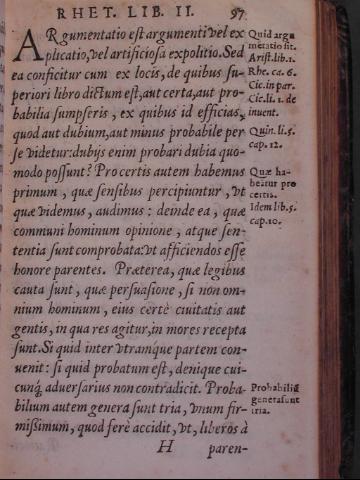 RHET. LIB. II. 97
ARgumentatio est argumenti vel ex
plicatio, vel artificiosa expolitio. Sed
ea conficitur cum ex locis, de quibus su-
periori libro dictum est, aut certa, aut pro-
babilia sumpseris, ex quibus id efficias,
quod aut dubium, aut minus probabile per
se videtur: dubijs enim probari dubia quo-
modo possunt? Pro certis autem habemus
primum, quæ sensibus percipiuntur, vt
quæ videmus, audimus: deinde ea, quæ
communi hominum opinione, atque sen-
tentia sunt comprobata: vt afficiendos esse
honore parentes. Præterea, quæ legibus
cauta sunt, quæ persuasione, si non om-
nium hominum, eius certè ciuitatis aut
gentis, in qua res agitur, in mores recepta
sunt. Si quid inter vtramque partem con-
uenit: si quid probatum est, denique cui-
cunq; aduersarius non contradicit. Proba-
bilium autem genera sunt tria, vnum fir-
missimum, quod ferè accidit, vt, liberos à
H paren-
Quid argu
mētatio sit.
Arist. lib. 1.
Rhe. ca. 6.
Cic. in par.
Cic. li. 1. de
inuent.
Quin. li. 5.
cap. 12.
Quæ ha-
beātur pro
certis.
Idem lib. 5.
cap. 10.
Probabiliū
genera sunt
tria.